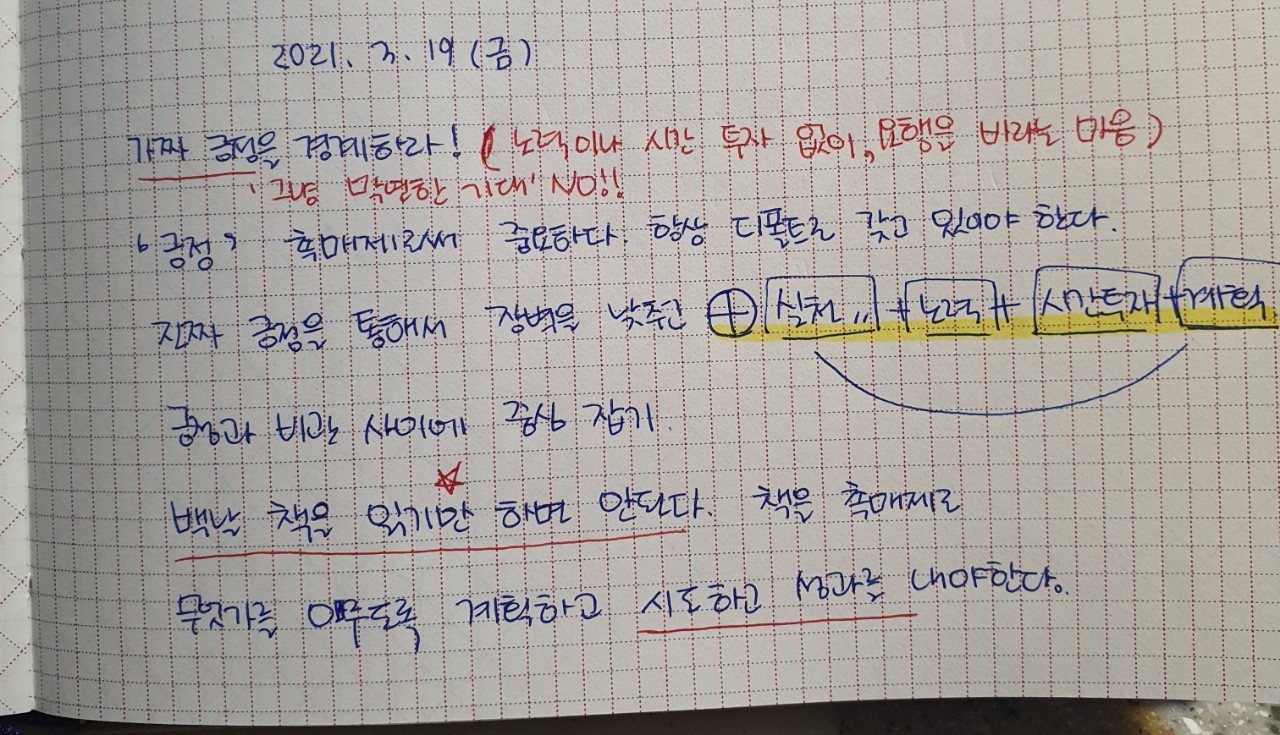 2021. 3. 19 (금)
가짜 긍정을 경계하라! (노력이나 시간 투자 없이, 요행을 바라는 마음)
'그냥 막연한 기대' NO!!
'긍정' 촉매제로써 중요하다. 항상 디폴트로 갖고 있어야 한다.
진짜 긍정을 통해서 장벽을 낮추고 ⊕ 실천,, + 노력 + 시간투자 + 계획
긍정과 비관 사이에 중심 잡기.
백날 책을 읽기만 하면 안된다. 책을 촉매제로
무엇가를 이루도록 계획하고 시도하고 성과를 내야한다.